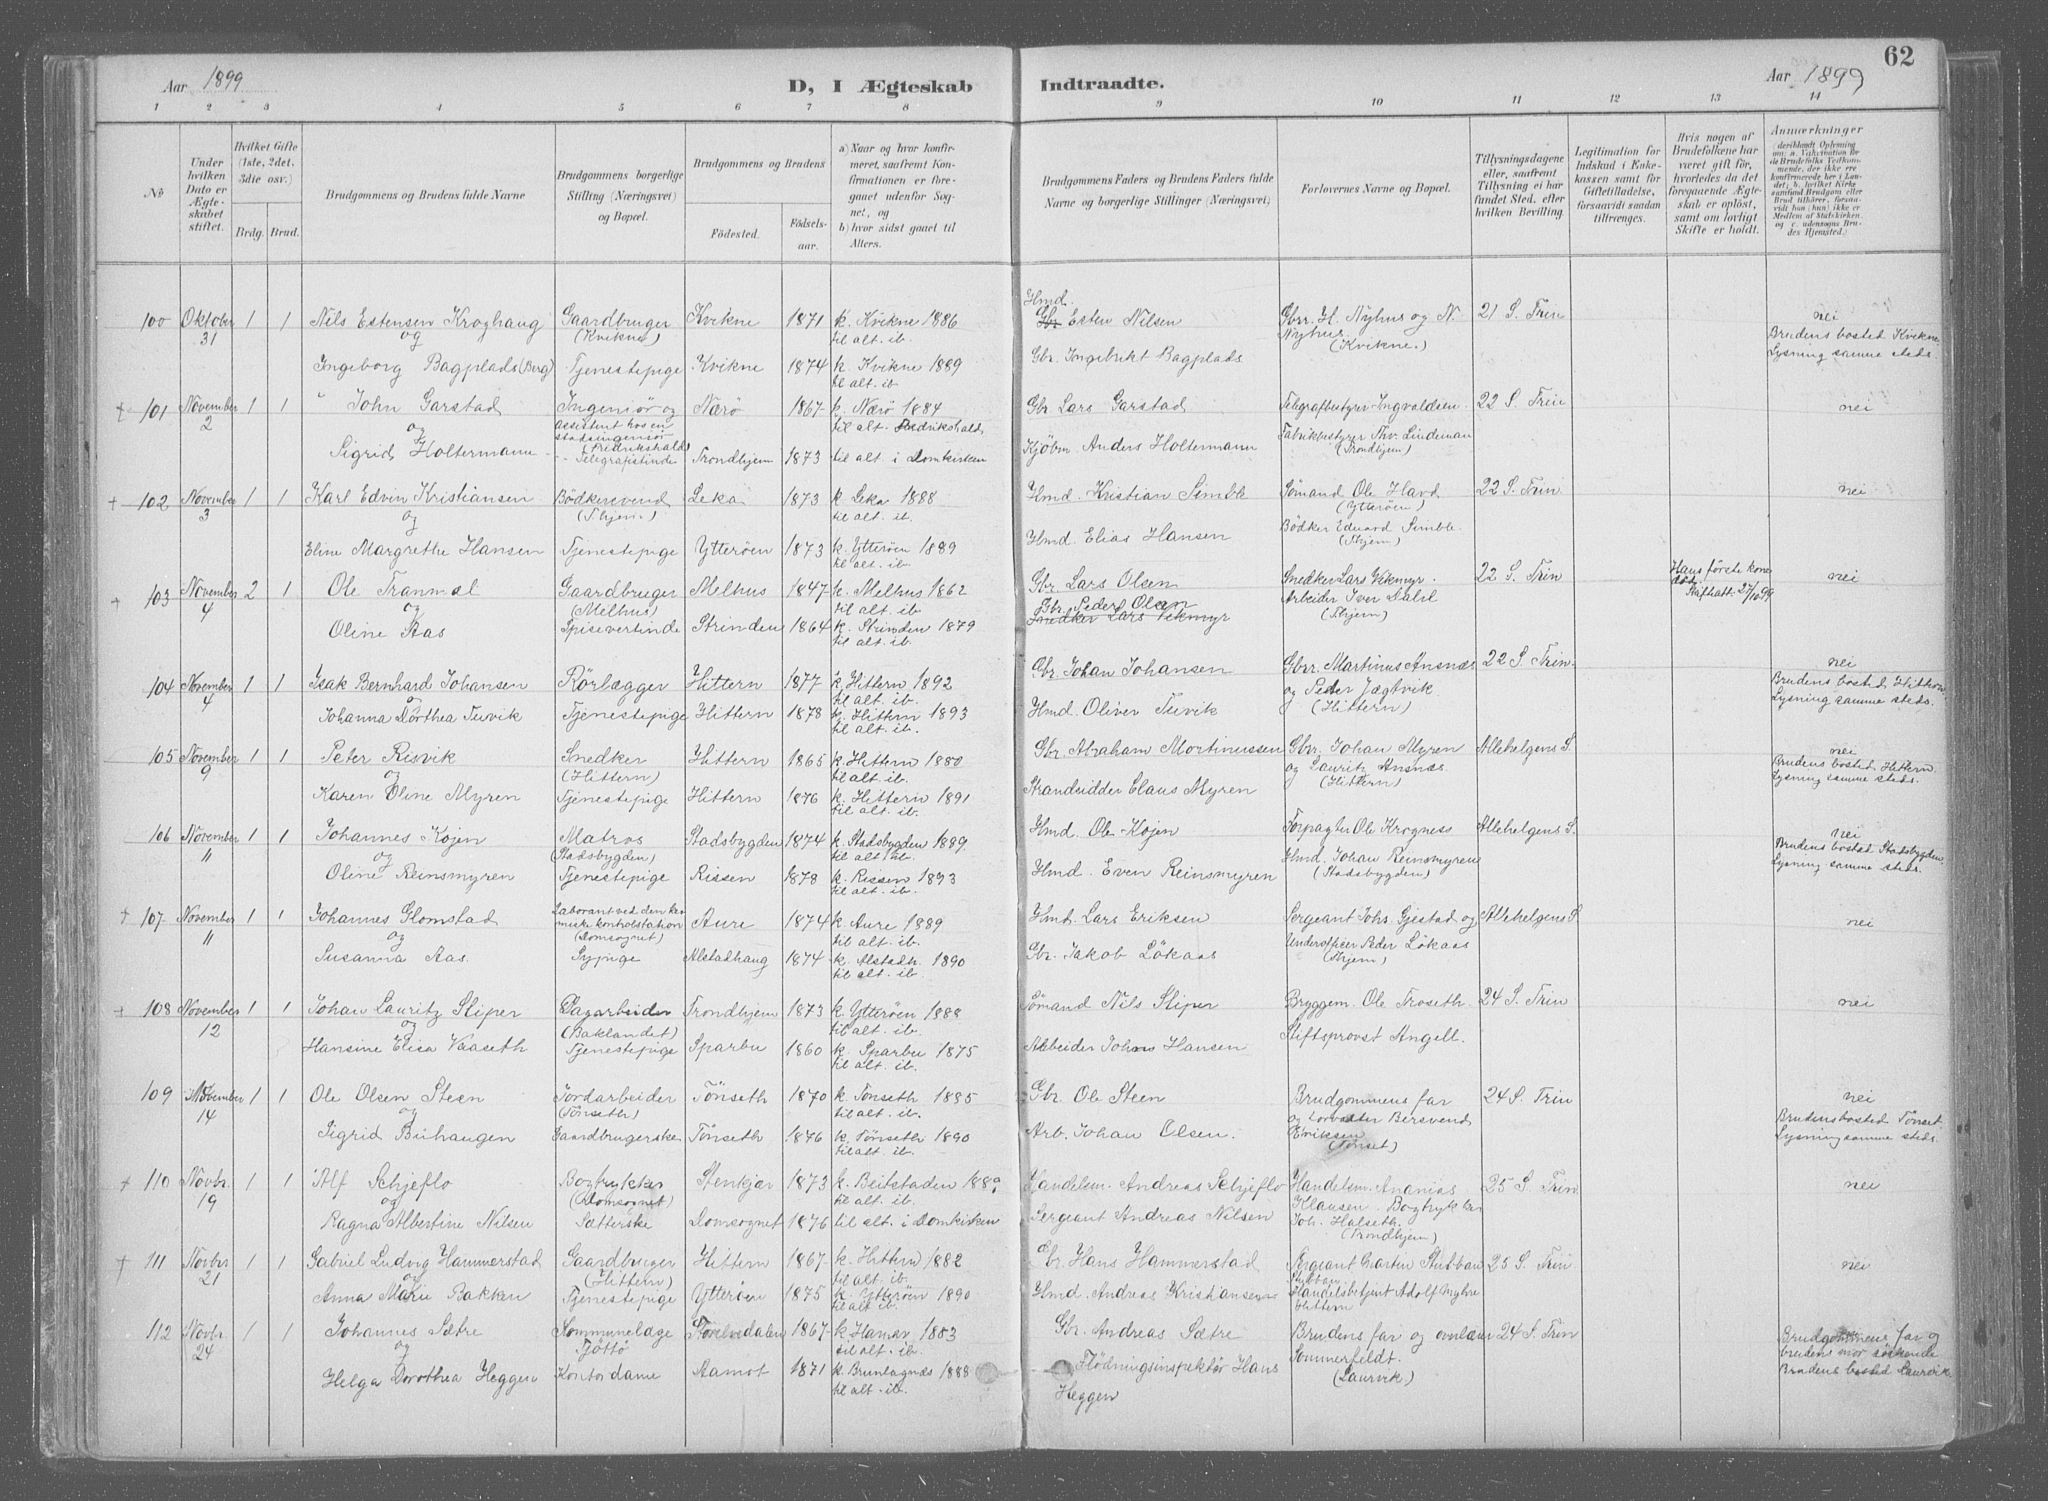 62
Aar 1899
D, I Ægteskab Indtraadte.
Aar 1899
1 2 3 4 5 6 7 8 9 10 11 12 13 14
No
Under hvilken Dato er Ægteskabet stiftet.
Hvilket Gifte (1ste, 2det, 3die osv.)
Brdg. Brud.
Brudgommens og Brudens fulde Navne
Brudgommens borgerlige Stilling (Næringsvei) og Bopæl.
Brudgommens og Brudens
Fødested. Fødselsaar.
a) Naar og hvor konfirmeret, saafremt Konfirmationen er foregaaet udenfor Sognet, og
b) hvor sidst gaaet til Alters.
Brudgommens Faders og Brudens Faders fulde Navne og borgerlige Stillinger (Næringsvei)
Forlovernes Navne og Bopæl.
Tillysningsdagene eller, saafremt Tillysning ei har fundet Sted, efter hvilken Bevilling.
Legitimation for Indskud i Enkekassen samt for Giftetilladelse, forsaavidt saadan tiltrænges.
Hvis nogen af Brudefolkene har været gift før, hvorledes da det foregaaende Ægteskab er opløst, samt om lovligt Skifte er holdt.
Anmærkninger (deriblandt Oplysning om: a. Vaccination for de Brudefolks Vedkommende, der ikke ere konfirmerede her i Landet; b. hvilket Kirkesamfund Brudgom eller Brud tilhører, forsaavidt han (hun) ikke er Medlem af Statskirken, og c. udensogns Brudes Hjemsted.)
100 Oktober 31 1 1 Nils Estensen Kroghaug Gaardbruger (Kvikne) Kvikne 1871 k. Kvikne 1886 til alt. ib. Hmd. Gbr Esten Nilsen Gbrr. H. Nyhus og N. Nyhus (Kvikne.) 21 S. Trin nei
og
Ingeborg Bagplads (Berg) Tjenestepige Kvikne 1874 k. Kvikne 1889 til alt. ib. Gbr. Ingebrikt Bagplads Brudens bosted Kvikne Lysning samme steds.
101 November 2 1 1 John Garstad Ingeniør og assistent hos en stadsingeniør (Fredrikshald) Nærö 1867 k. Nærö 1884 til alt. Fredrikshald Gbr. Lars Garstad Telegrafbestyrer Ingvaldsen 22 S. Trin nei
og
Sigrid Holtermann Telegrafistinde Trondhjem 1873 til alt. i Domkirken Kjøbm. Anders Holtermann Fabrikbestyrer Thv. Lindeman (Trondhjem)
102 November 3 1 1 Karl Edvin Kristiansen Bödkersvend (Thjem) Leka 1873 k. Leka 1888 til alt. ib. Hmd. Kristian Simble Sömand Ole Hard (Ytterøen) 22 S. Trin nei
og
Eline Margrethe Hansen Tjenestepige Ytterøen 1873 k. Ytterøen 1889 til alt. ib. Hmd. Elias Hansen Bödker Edvard Simble (Thjem)
103 November 4 2 1 Ole Tranmæl Gaardbruger (Melhus) Melhus 1847 k. Melhus 1862 til alt. ib. Gbr. Lars Olsen Snedker Lars Vikmyr 22 S. Trin Hans første kone død. Skifteatt. 27/10 99 nei
og
Oline Aas Spisevertinde Strinden 1864 k. Strinden 1879 til alt. ib. Gbr. Peder Olsen Snedker Lars Vikmyr Arbeider Iver Dahl (Thjem)
104 November 4 1 1 Isak Bernhard Johansen Rörlægger Hittern 1877 k. Hittern 1892 til alt. ib. Gbr. Johan Johansen Gbrr. Martinus Ansnæs og Peder Jægtvik (Hittern) 22 S. Trin nei
og
Johanna Dorthea Tuvik Tjenestepige Hittern 1878 k. Hittern 1893 til alt. ib. Hmd. Oliver Tuvik Brudens bosted Hittern Lysning samme steds.
105 November 9 1 1 Peter Risvik Snedker (Hittern) Hittern 1865 k. Hittern 1880 til alt. ib. Gbr. Abraham Martinussen Gbrr. Johan Myren og Lauritz Ansnæs (Hittern) Allehelgens S. nei
og
Karen Oline Myren Tjenestepige Hittern 1876 k. Hittern 1891 til alt. ib. Strandsidder Claus Myren Brudens bosted Hittern. Lysning samme steds.
106 November 11 1 1 Johannes Kojen Matros (Stadsbygden) Stadsbygden 1874 k. Stadsbygden 1889 til alt. ib. Hmd. Ole Kojen Forpagter Ole Krogness Allehelgens S. nei
og
Oline Reinsmyren Tjenestepige Rissen 1878 k. Rissen 1893 til alt. ib. Hmd. Even Reinsmyren Hmd. Johan Reinsmyren (Stadsbygden) Brudens bosted Stadsbygden. Lysning samme steds.
107 November 11 1 1 Johannes Glomstad Laborant ved den kemiske kontrolstation (Domsognet) Aure 1874 k. Aure 1889 til alt. ib. Hmd. Lars Eriksen Sergeant Johs Gjestad og Allehelgens S nei
og
Susanna Aas Sypige Alstadhaug 1874 k. Alstadh. 1890 til alt. ib. Gbr. Jakob Lökaas Underofficer Peder Lökaas (Thjem)
108 November 12 1 1 Johan Lauritz Stiper Dagarbeider (Baklandet) Trondhjem 1873 k. Ytterøen 1888 til alt. ib. Sömand Nils Stiper Bryggem. Ole Troseth 24 S. Trin nei
og
Hansine Elisa Vaaseth Tjenestepige Sparbu 1860 k. Sparbu 1875 til alt. ib. Arbeider Johans Hansen Stiftsprovst Angell.
109 November 14 1 1 Ole Olsen Steen Jordarbeider (Tönseth) Tönseth 1870 k. Tönseth 1885 til alt. ib. Gbr. Ole Steen Brudgommens far og Bersvend Eriksen (Tönset) 24 S. Trin nei
og
Sigrid Buhaugen Gaardbrugerske Tönseth 1876 k. Tönseth 1890 til alt. ib. Arb. Johan Olsen. Brudens bosted Tönset. Lysning samme steds.
110 Novbr. 19 1 1 Alf Schjeflo Bogtrykker (Domsognet) Stenkjær 1873 k. Beitstaden til alt. ib. Handelsm. Andreas Schjeflo Handelsm. Ananias Klausen. Bogtrykker Joh. Halseth (Trondhjem) 25 S. Trin nei
og
Ragna Albertine Nilsen Sætterske Domsognet 1876 til alt. i Domkirken Sergeant Andreas Nilsen
111 Novbr 21 1 1 Gabriel Ludvig Hammerstad Gaardbruger (Hittern) Hittern 1867 k. Hittern 1882 til alt. ib. Gbr. Hans Hammerstad Sergeant Martin Stubban Stubban 25 S. Trin nei
og
Anna Marie Bakken Tjenestepige Ytterøen 1875 k. Ytterøen 1890 til alt. ib. Hmd. Andreas Kristiansen Handelsbetjent Adolf Myhre Hittern
112 Novbr. 24 1 1 Johannes Sætre Kommunelæge Tjöttö Storelvedalen 1867 k. Hamar 1883 til alt. ib. Gbr. Andreas Sætre Brudens far og Sommerfeldt. (Laurvik) 24 S. Trin Brudgommens far og brudens mor Brudens bosted Laurvik.
og
Helga Dorothea Heggen Kontordame Aamot 1871 k. Bruntagnæs 1888 til alt. ib. Flödningsinspektör Hans Heggen